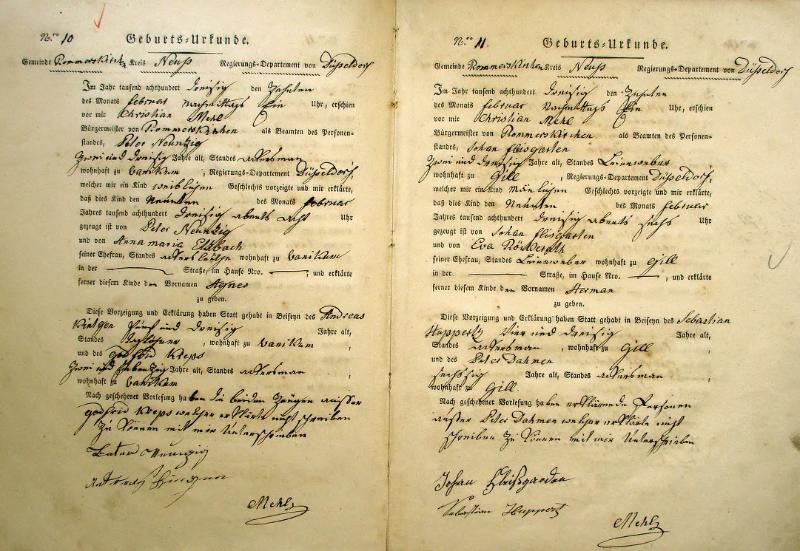 Nro 10 Geburts-Urkunde.
Gemeinde Rommerskirchen Kreis Neuß Regierungs-Departement von Düsseldorf
Im Jahr tausend achthundert dreisig den Zehnten
des Monats februar nachmittags Ein Uhr, erschien
vor mir Christian Mehl
Bürgermeister von Rommerskirchen als Beamten des Personen-
standes, Peter Neunzig
zwei und dreisig Jahre alt, Standes ackersman
wohnhaft zu Vanikum, Regierungs-Departement Düsseldorf,
welcher mir ein Kind weiblichen Geschlechts vorzeigte und mir erklärte,
daß dies Kind den Neunten des Monats februar
Jahres tausend achthundert dreisig abents acht Uhr
gezeugt ist von Peter Neunzig
und den Anna Maria Esbach
seiner Ehefrau, Standes ackersleuthe wohnhaft zu Vanikum
in der Straße, im Hause Nro. , und erklärte
ferner diesem Kinde den Vornamen Agnes
zu geben.
Diese Vorzeigung und Erklärung haben Statt gehabt in Beiseyn des Andreas
fünf und dreisig Jahre alt,
Standes , wohnhaft zu Vanikum
und des Godfrid Kreps
zwei und siebenzig Jahre alt, Standes ackersman
wohnhaft zu Vanikum
Nach geschehener Vorlesung haben die beiden Zeugen ausser
godfrid Kreps welcher erklärte nicht schreiben
zu können mit mir unterschrieben
Peter Neunzig
Mehl
Nro 11. Geburts-Urkunde.
Gemeinde Rommerskirchen Kreis Neuß Regierungs-Departement von Düsseldorf
Im Jahr tausend achthundert dreisig den Zehnten
des Monats februar nachmittags Ein Uhr, erschien
vor mir Christian Mehl
Bürgermeister von Rommerskirchen als Beamten des Personen-
standes, Johan flisgarten
zwei und dreisig Jahre alt, Standes Leineweber
wohnhaft zu Gill, Regierungs-Departement Düsseldorf,
welcher mir ein Kind mänlichen Geschlechts vorzeigte und mir erklärte,
daß dies Kind den Neunten des Monats februar
Jahres tausend achthundert dreisig abents sechs Uhr
gezeugt ist von Johan flisgarten
und von Eva
seiner Ehefrau, Standes Leineweber wohnhaft zu Gill
in der Straße, im Hause Nro. , und erklärte
ferner diesem Kinde den Vornamen Herman
zu geben.
Diese Vorzeigung und Erklärung haben Statt gehabt in Beiseyn des Sebastian
Huppertz vier und dreisig Jahre alt,
Standes ackersman, wohnhaft zu Gill
und des Peter Dahmen
sechszig Jahre alt, Standes ackersman
wohnhaft zu Gill
Nach geschehener Vorlesung haben Personen
ausser Peter Dahmen welcher erklärte nicht
schreiben zu können mit mir unterschrieben
Johan
Sebastian Huppertz
Mehl